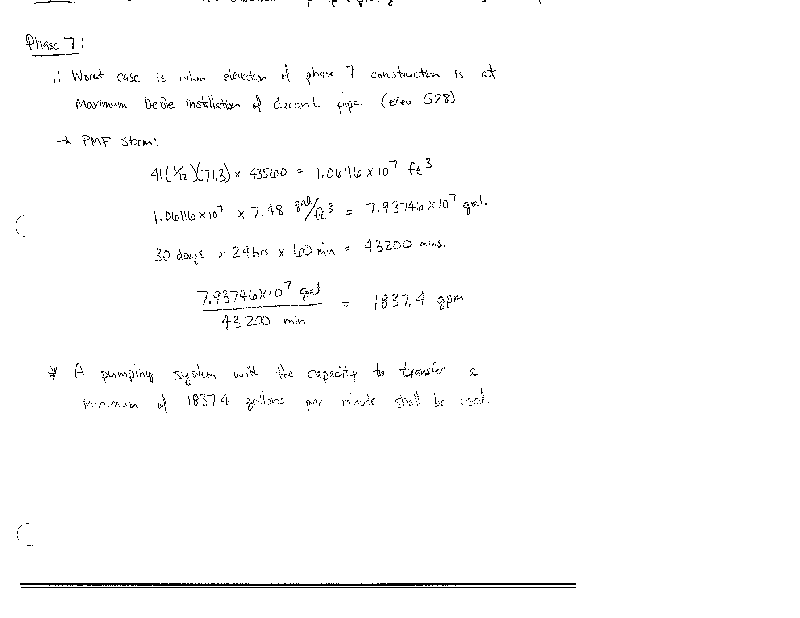 Phase 7:
∴ Worst case is when elevation of phase 7 construction is at
Maximum before installation of decant pipe. (elev 528)
→ PMF Storm:
41(1/12)(71.3) × 43560 = 1.0616 × 10^7 ft^3
1.0616 × 10^7 × 7.48 gal/ft^3 = 7.93746 × 10^7 gal.
30 days × 24 hrs × 60 min = 43200 mins.
7.93746 × 10^7 gal
43200 min
= 1837.4 gpm
* A pumping system with the capacity to transfer a
minimum of 1837.4 gallons per minute shall be used.